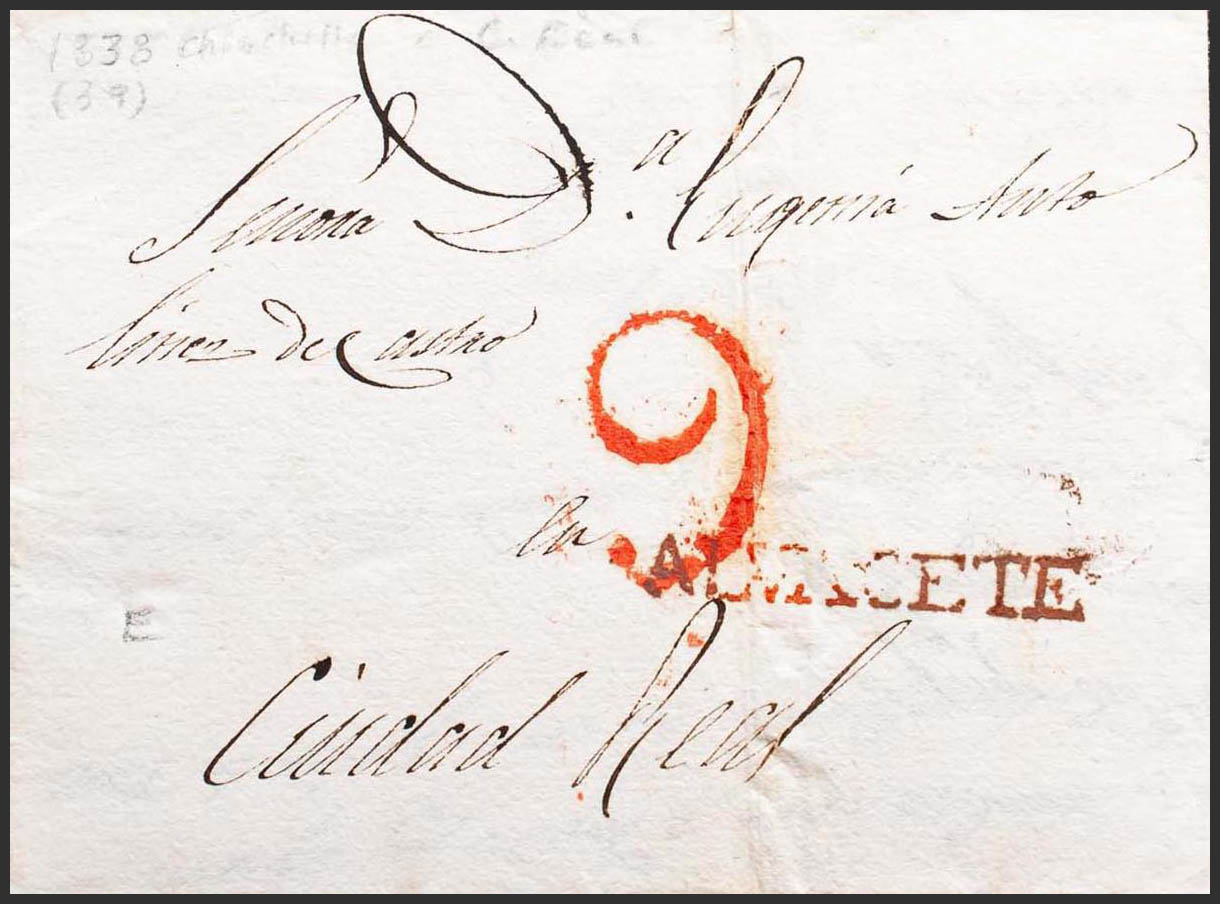 1838 Chinchilla a C. Real
(39)
Semora D.ª Eugenia Anto
linez de Castro
9
en
ALBACETE
E
Ciudad Real